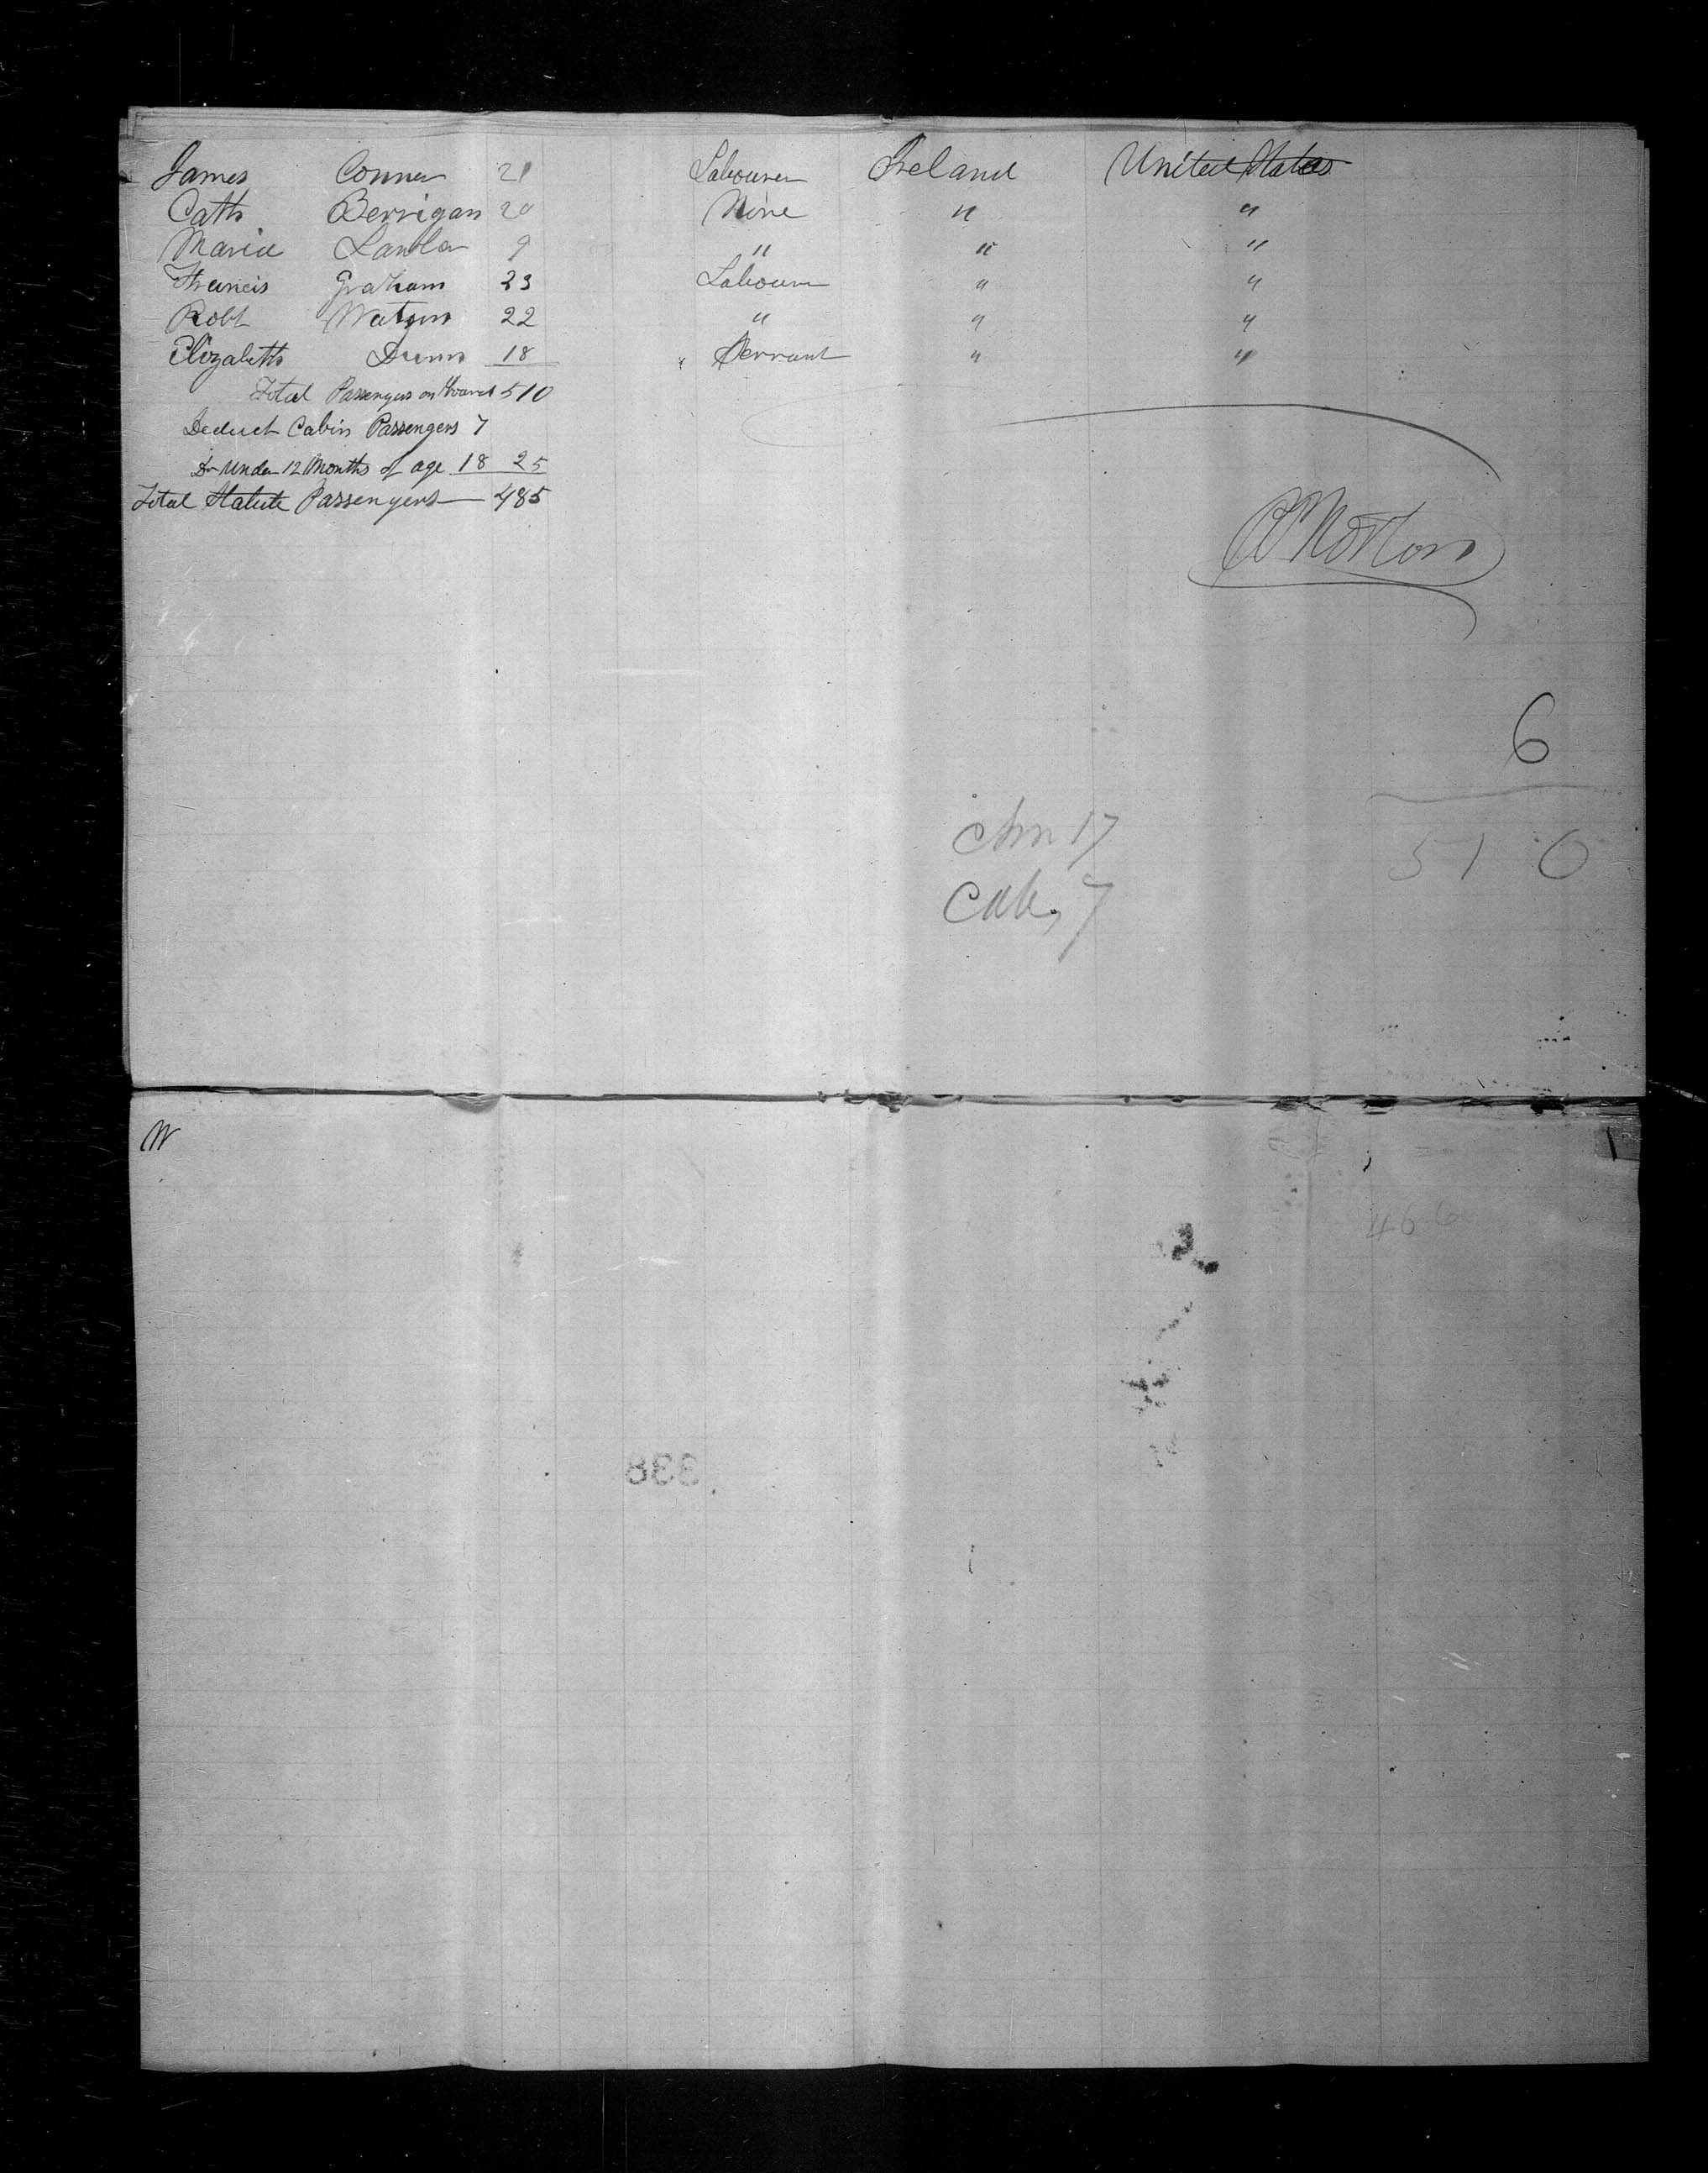 James Conner 21 Labourer Ireland United States
Cath Berrigan 20 None " "
Maria Lawlor 9 " " "
Francis Graham 23 Labourer " "
Robt Watson 22 " " "
Elizabeth Dunn 18 Servant " "
Total Passengers on Board 510
Deduct Cabin Passengers 7
Do Under 12 Months of age 18 25
Total Statute Passengers 485
Morton
6
510
chn 17
Cab, 7
W
466
338